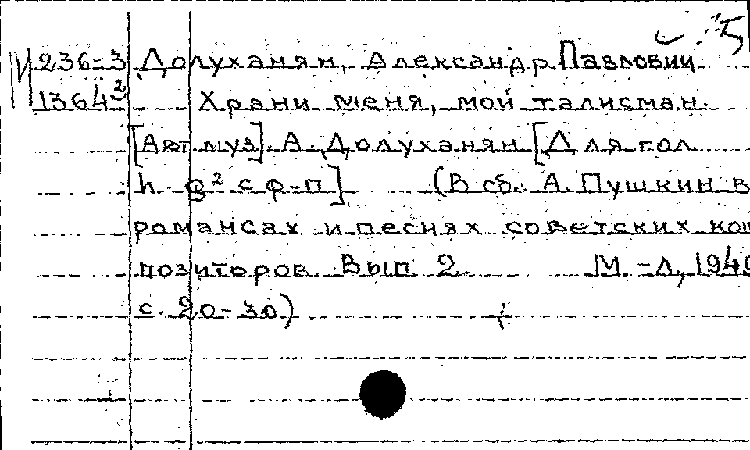 И 236-3 Долуханян, Александр Павлович
1364² Храни меня, мой талисман.
[Авт муз]. А. Долуханян [Для гол
с ф-п] (В сб. А. Пушкин в
романсах и песнях советских ком
позиторов Вып 2 М.-Л, 1949
с. 20-30)